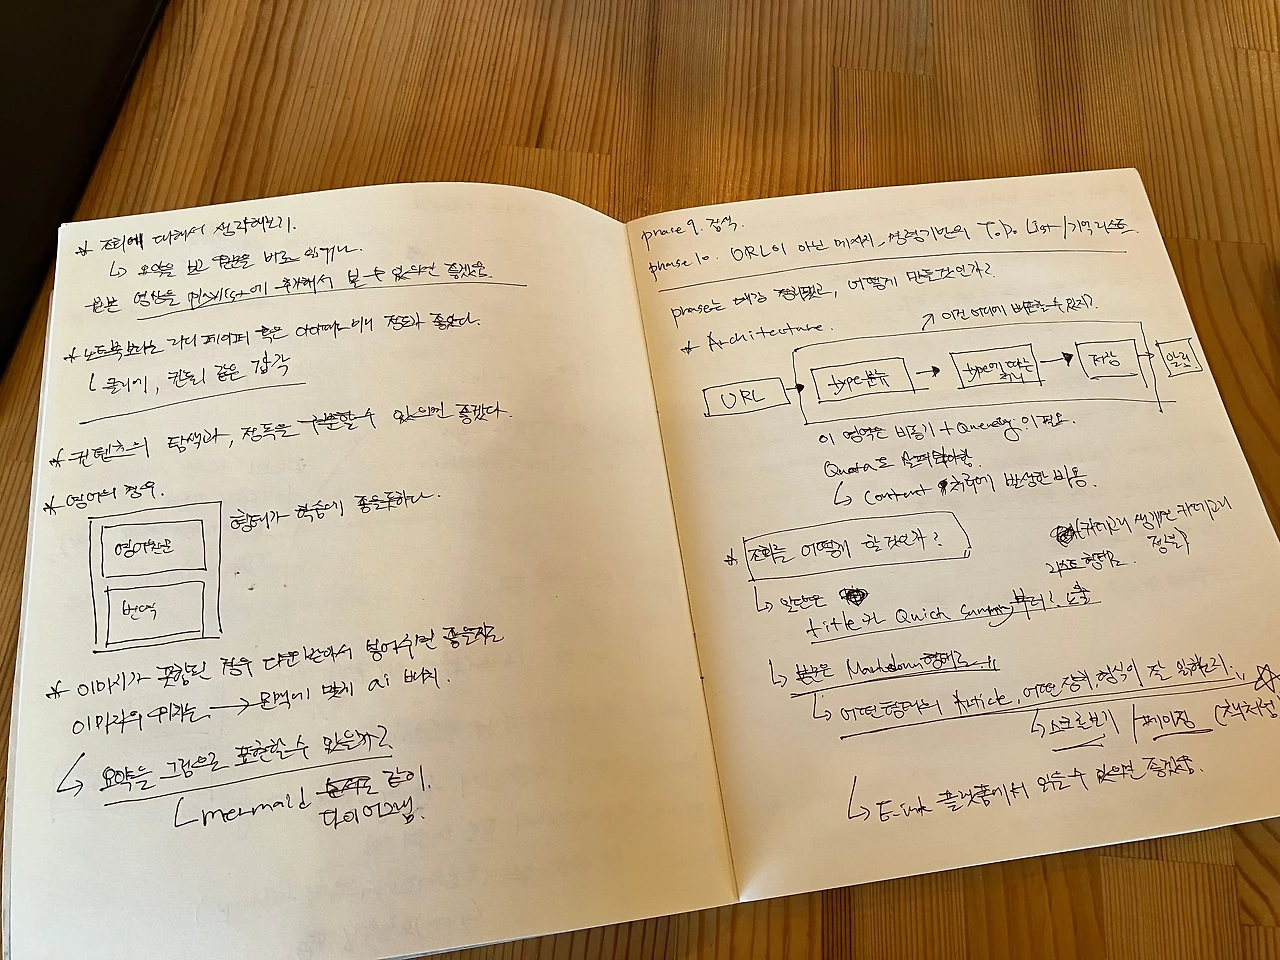 * 조회에 대해서 생각해보기.
↳ 요약을 보고 원문을 바로 읽거나.
영상을 playlist에 추가해서 볼 수 있으면 좋겠음.
* 노트북보다는 페이퍼 혹은 아이패드 미니 정도가 좋겠다.
↳ 킨들 같은 감각
* 컨텐츠의 탐색과, 정독을 구분할 수 있으면 좋겠다.
* 영어의 경우.
형태가 학습에 좋을듯하다.
영어원문
번역
* 이미지가 포함된 경우 다운받아서 붙여주면 좋을지도
이미지의 위치는 → 문맥에 맞게 ai 배치.
↳ 요약을 그림으로 표현할 수 있을까?
↳ mermaid 같이.
다이어그램.
phase 9. 검색
phase 10. URL이 아닌 메시지, 명령기반의 ToDo List / 기억리스트
phase는 대강 정리됐고, 어떻게 만들것인가?
* Architecture.
↗ 이건 어디에 배포할 수 있지?
URL → type분류 → type에 따른 처리 → 저장 → 알림
이 영역은 비동기 + Queueing이 필요.
Quota도 살펴봐야함.
↳ Content 처리에 발생한 비용.
* 조회를 어떻게 할것인가?
(카테고리 생계면 카테고리
리스트 형태로. 정보)
↳ 일단은
title과 Quick summary부터? 노출
↳ 본문은 Markdown형태로..
↳ 어떤형태의 Article, 어떤 장치, 형식이 잘 읽히는지.
↳ 스크로보기 / 페이징 (책처럼)
↳ E-ink 플랫폼에서 읽을 수 있으면 좋겠음.